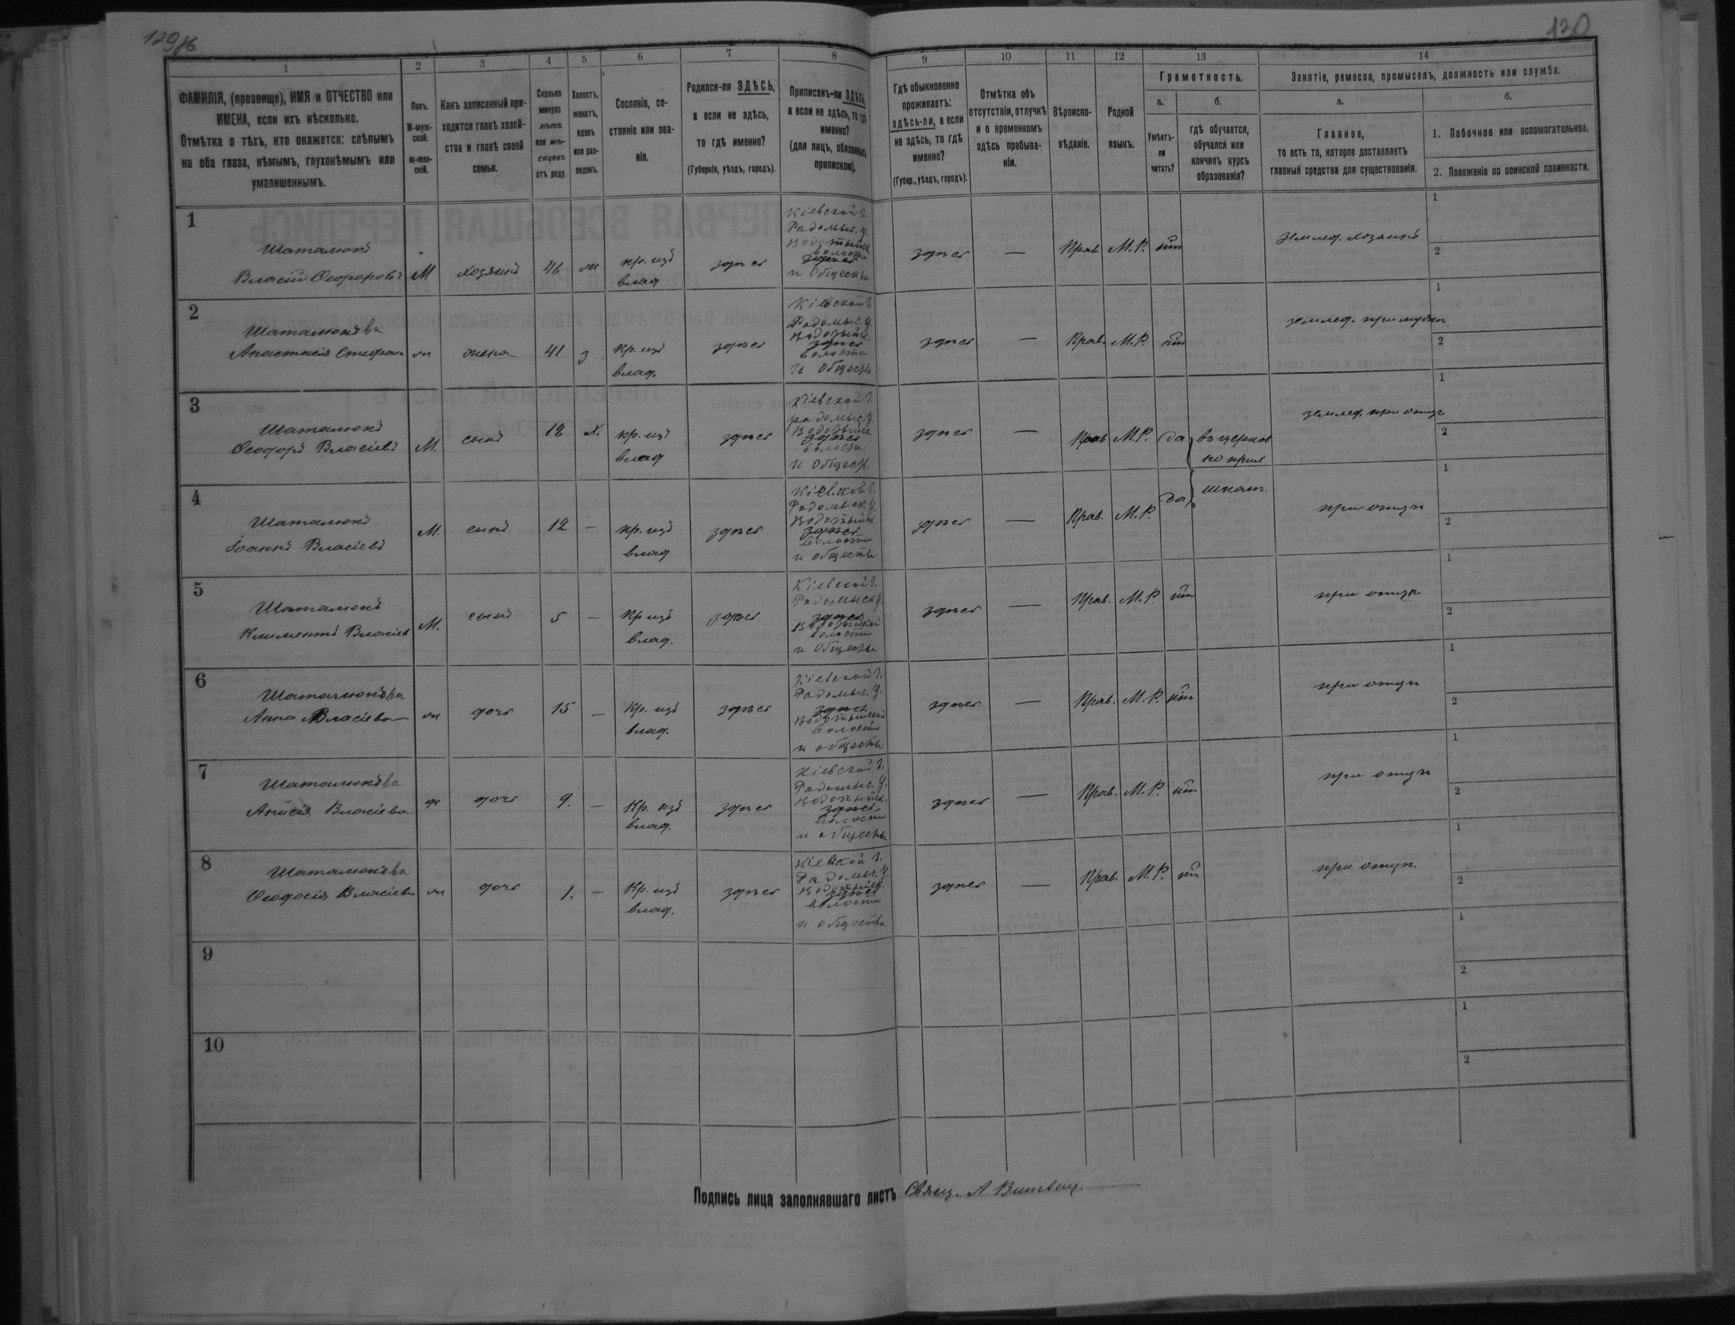 129об
130
1 2 3 4 5 6 7 8 9 10 11 12 13 14
ФАМИЛІЯ, (прозвище), ИМЯ и ОТЧЕСТВО или
ИМЕНА, если ихъ нѣсколько.
Отмѣтка о тѣхъ, кто окажется: слѣпымъ
на оба глаза, нѣмымъ, глухонѣмымъ или
умалишеннымъ.
Полъ.
М-муж-
ской.
ж-жен-
скій.
Какъ записанный при-
ходится главѣ хозяй-
ства и главѣ своей
семьи.
Сколько
минуло
лѣтъ
или мѣ-
сяцевъ
отъ роду.
Холостъ,
женатъ,
вдовъ
или раз-
веденъ.
Сословіе, со-
стояніе или зва-
ніе.
Родился-ли ЗДѢСЬ,
а если не здѣсь,
то гдѣ именно?
(Губернія, уѣздъ, городъ).
Приписанъ-ли ЗДѢСЬ,
а если не здѣсь, то гдѣ
именно?
(для лицъ, обязанныхъ
припискою).
Гдѣ обыкновенно
проживаетъ:
здѣсь-ли, а если
не здѣсь, то гдѣ
именно?
(Губер., уѣздъ, городъ).
Отмѣтка объ
отсутствіи, отлучкѣ
и о временномъ
здѣсь пребыва-
ніи.
Вѣроиспо-
вѣданіе.
Родной
языкъ.
Грамотность.
а.
Умѣетъ-
ли
читать?
б.
гдѣ обучается,
обучался или
кончилъ курсъ
образованія?
Занятіе, ремесло, промыселъ, должность или служба.
а.
Главное,
то есть то, которое доставляетъ
главныя средства для существованія.
б.
1. Побочное или вспомогательное.
2. Положеніе по воинской повинности.
1
Шаталюкъ
Власій Ѳеодоровъ М хозяинъ 46 ж кр. изъ
влад здѣсь
Кіевской г.
Радомыс. у.
волости
здѣсь
и общества
здѣсь — Прав. М.Р. нѣт Землед. хозяинъ
1
2
2
Шаталюкъва
Анастасія Стефан ж жена 41 з Кр. изъ
влад. здѣсь
Кіевской г.
Радомыс. у.
здѣсь
волости
и обществ.
здѣсь — Прав. М.Р. нѣт землед. при мужѣ
1
2
3
Шаталюкъ
Ѳеодоръ Власіевъ М. сынъ 18 х. кр. изъ
влад здѣсь
Кіевской г.
Радомыс. у.
здѣсь
волости
и обществ.
здѣсь — Прав М.Р. да в церков
но прих
школ.
землед. при отцѣ
1
2
4
Шаталюкъ
Іоаннъ Власіевъ М. сынъ 12 — кр. изъ
влад здѣсь
Радомыс. у.
здѣсь
волости
и общества
здѣсь — Прав. М.Р. да при отцѣ
1
2
5
Шаталюкъ
Климентъ Власіев М. сынъ 5 — Кр изъ
влад. здѣсь
Кіевской г.
Радомыск у.
здѣсь
волости
и обществ
здѣсь — Прав. М.Р. нѣт при отцѣ
1
2
6
Шаталюкъва
Анна Власіева ж дочь 15 — Кр. изъ
влад. здѣсь
Кіевской г.
Радомыс. у.
здѣсь
волости
и общества
здѣсь — Прав. М.Р. нѣт при отцѣ
1
2
7
Шаталюкъва
Анисія Власіева ж дочь 9. — Кр. изъ
влад. здѣсь
Кіевской г.
Радомыс. у.
здѣсь
волости
и обществ
здѣсь — Прав. М.Р. нѣт при отцѣ
1
2
8
Шаталюкъва
Ѳеодосія Власіева ж дочь 1. — Кр. изъ
влад. здѣсь
Радомыс. у.
здѣсь
волости
и общества
здѣсь — Прав. М.Р. нѣт при отцѣ.
1
2
9
1
2
10
1
2
Подпись лица заполнявшаго листъ Свящ. А